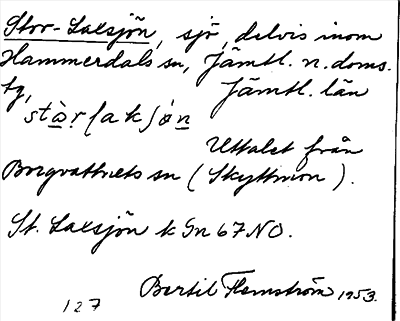 Stor-Laxsjön, sjö, delvis inom
Hammerdals sn, Jämtl. n. doms.
tg, Jämtl. län
Uttalet från
Borgvattnets sn (Skyttmon).
St. Laxsjön k Gn 67 NO.
Bertil Flemström 1953.
127